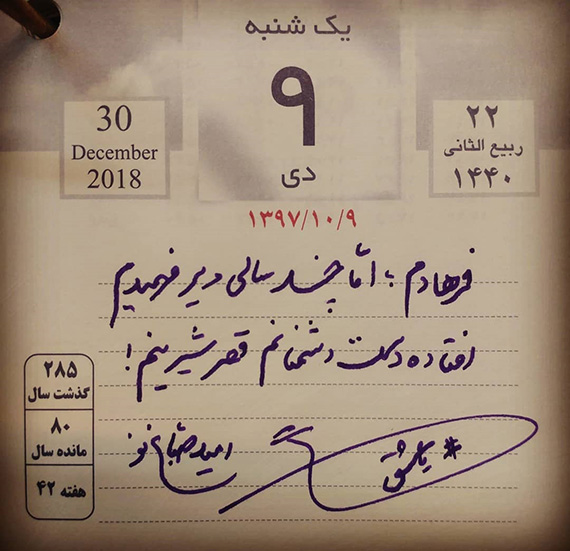 یک شنبه
۹
دی
30
December
2018
۲۲
ربیع الثانی
۱۴۴۰
۱۳۹۷/۱۰/۹
فرهادم ؛ امّا چند سالی دیر فهمیدم
افتاده دست دشمنانم قصر شیرینم!
امید صباغ نو
#یا_عشق
۲۸۵
گذشت سال
۸۰
مانده سال
هفته ۴۲